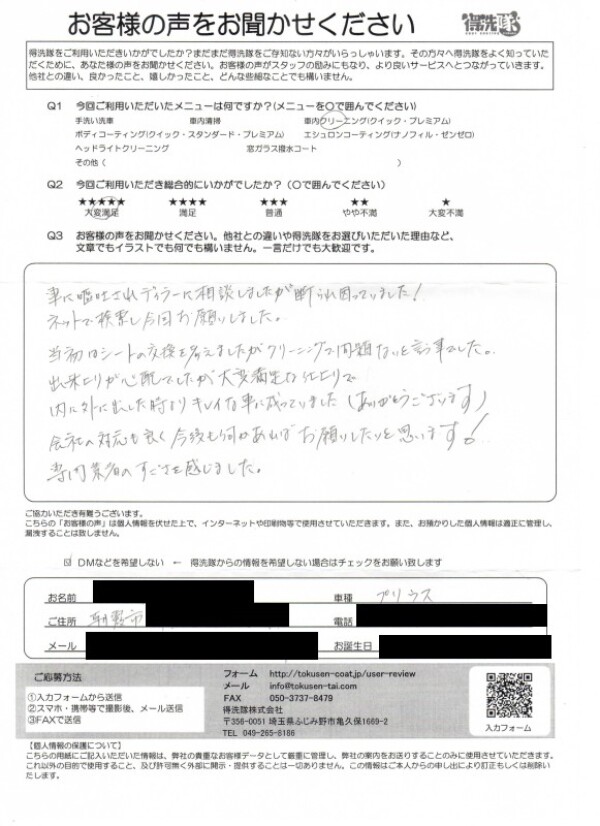 お客様の声をお聞かせください
得洗隊
得洗隊をご利用いただきいかがでしたか？まだまだ得洗隊をご存知ない方々がいらっしゃいます。その方々へ得洗隊をよく知っていた
だくために、あなた様の声をお聞かせください。お客様の声がスタッフの励みにもなり、より良いサービスへとつながっていきます。
他社との違い、良かったこと、嬉しかったこと、どんな些細なことでも構いません。
Q1 今回ご利用いただいたメニューは何ですか？(メニューを〇で囲んでください)
手洗い洗車 車内清掃 車内クリーニング(クイック・プレミアム)
ボディコーティング(クイック・スタンダード・プレミアム) エシュロンコーティング(ナノフィル・ゼンゼロ)
ヘッドライトクリーニング 窓ガラス撥水コート
その他 ( )
Q2 今回ご利用いただき総合的にいかがでしたか？(〇で囲んでください)
★★★★★ ★★★★ ★★★ ★★ ★
大変満足 満足 普通 やや不満 大変不満
Q3 お客様の声をお聞かせください。他社との違いや得洗隊をお選びいただいた理由など、
文章でもイラストでも何でも構いません。一言だけでも大歓迎です。
車に嘔吐されディラーに相談しましたが断られ困っていました！
ネットで検索し今回お願いしました。
当初はシートの交換を考えましたがクリーニングで問題ないと言う事でした。
出来上りが心配でしたが大変満足な仕上りで
内に外に出した時よりキレイな車に成っていました(ありがとうございます)
会社の対応も良く今後も何かあればお願いしたいと思います！
専門業者のすごさを感じました。
ご協力いただき有難うございます。
こちらの「お客様の声」は個人情報を伏せた上で、インターネットや印刷物等で使用させていただきます。また、お預かりした個人情報は適正に管理し、
漏洩することは致しません。
☑ DMなどを希望しない ← 得洗隊からの情報を希望しない場合はチェックをお願い致します
お名前 車種 プリウス
ご住所 朝霞市 電話
メール お誕生日
ご応募方法
①入力フォームから送信
②スマホ・携帯等で撮影後、メール送信
③FAXで送信
フォーム http://tokusen-coat.jp/user-review
メール info@tokusen-tai.com
FAX 050-3737-8479
得洗隊株式会社
〒356-0051 埼玉県ふじみ野市亀久保1669-2
TEL 049-265-8186
入力フォーム
【個人情報の保護について】
こちらの用紙にご記入いただいた情報は、弊社の貴重なお客様データとして厳重に管理し、弊社の案内をお送りすることのみに使用させていただきます。
これ以外の目的で使用すること、及び許可無く外部に開示・提供することは一切ありません。この情報はご本人からの申し出により訂正もしくは削除い
たします。